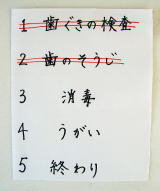 1 歯ぐきの検査
2 歯のそうじ
3 消毒
4 うがい
5 終わり